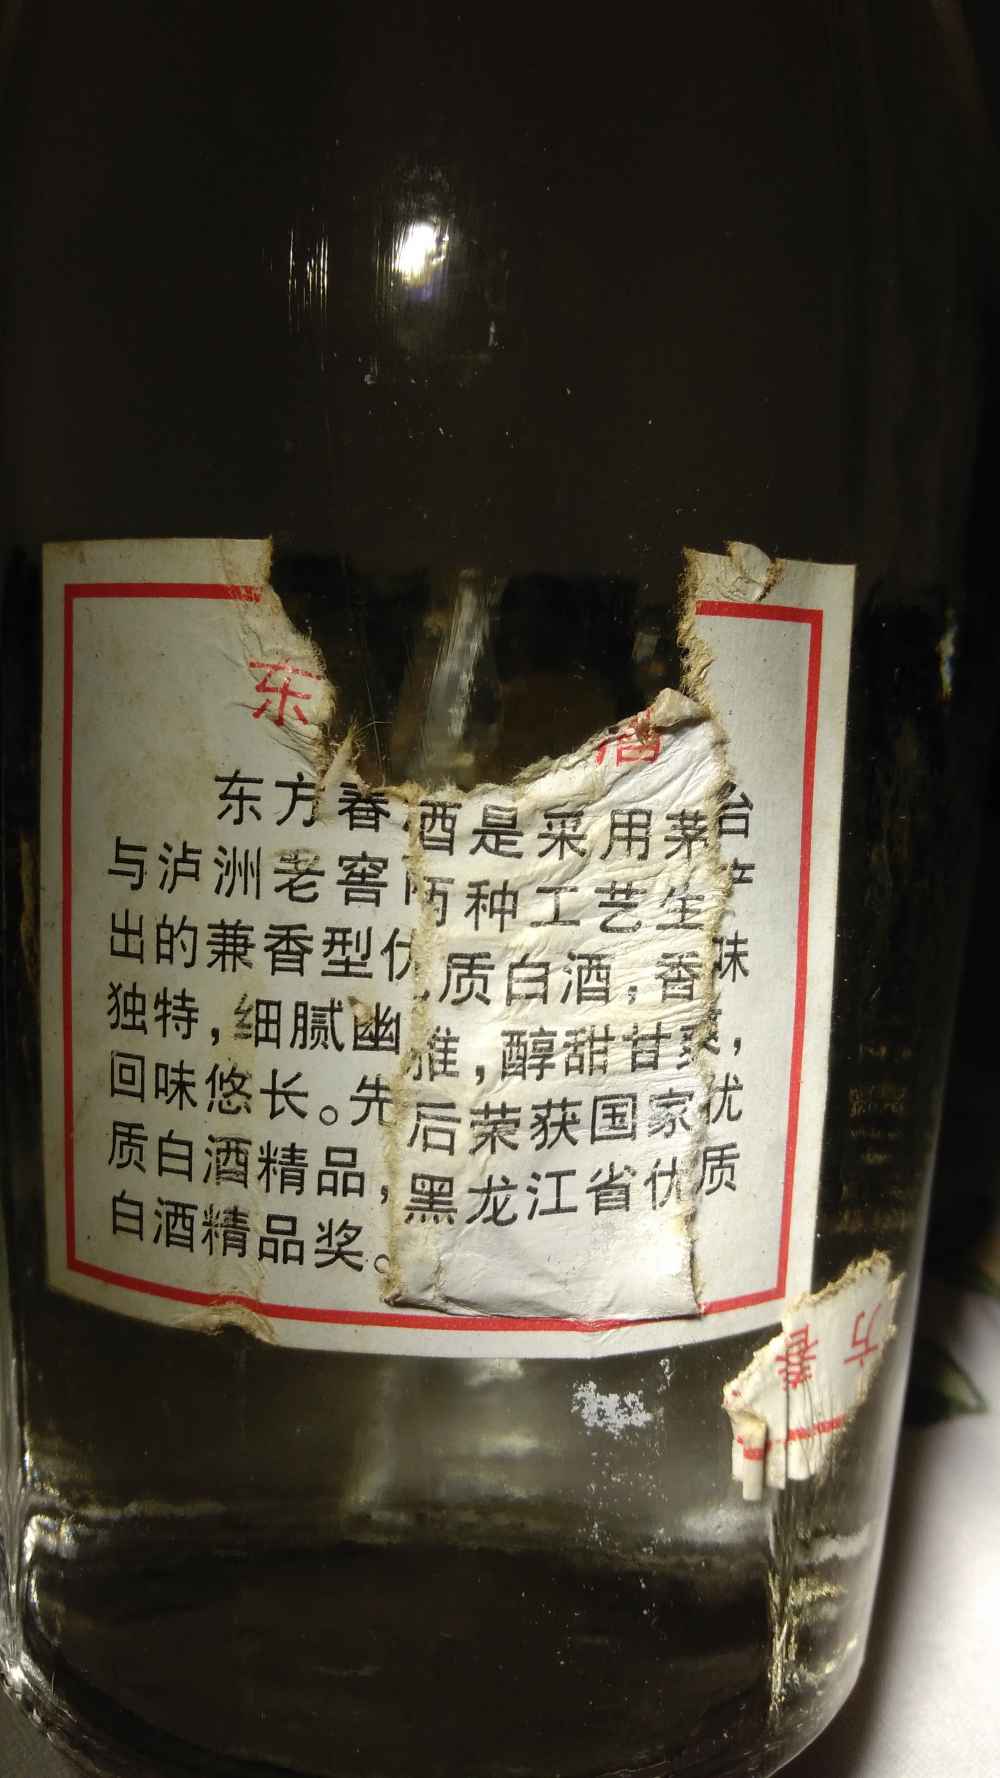 东 酒
东方春酒是采用茅台
与泸洲老窖两种工艺生产
出的兼香型优质白酒,香味
独特,细腻幽雅,醇甜甘爽,
回味悠长。先后荣获国家优
质白酒精品,黑龙江省优质
白酒精品奖。
方春